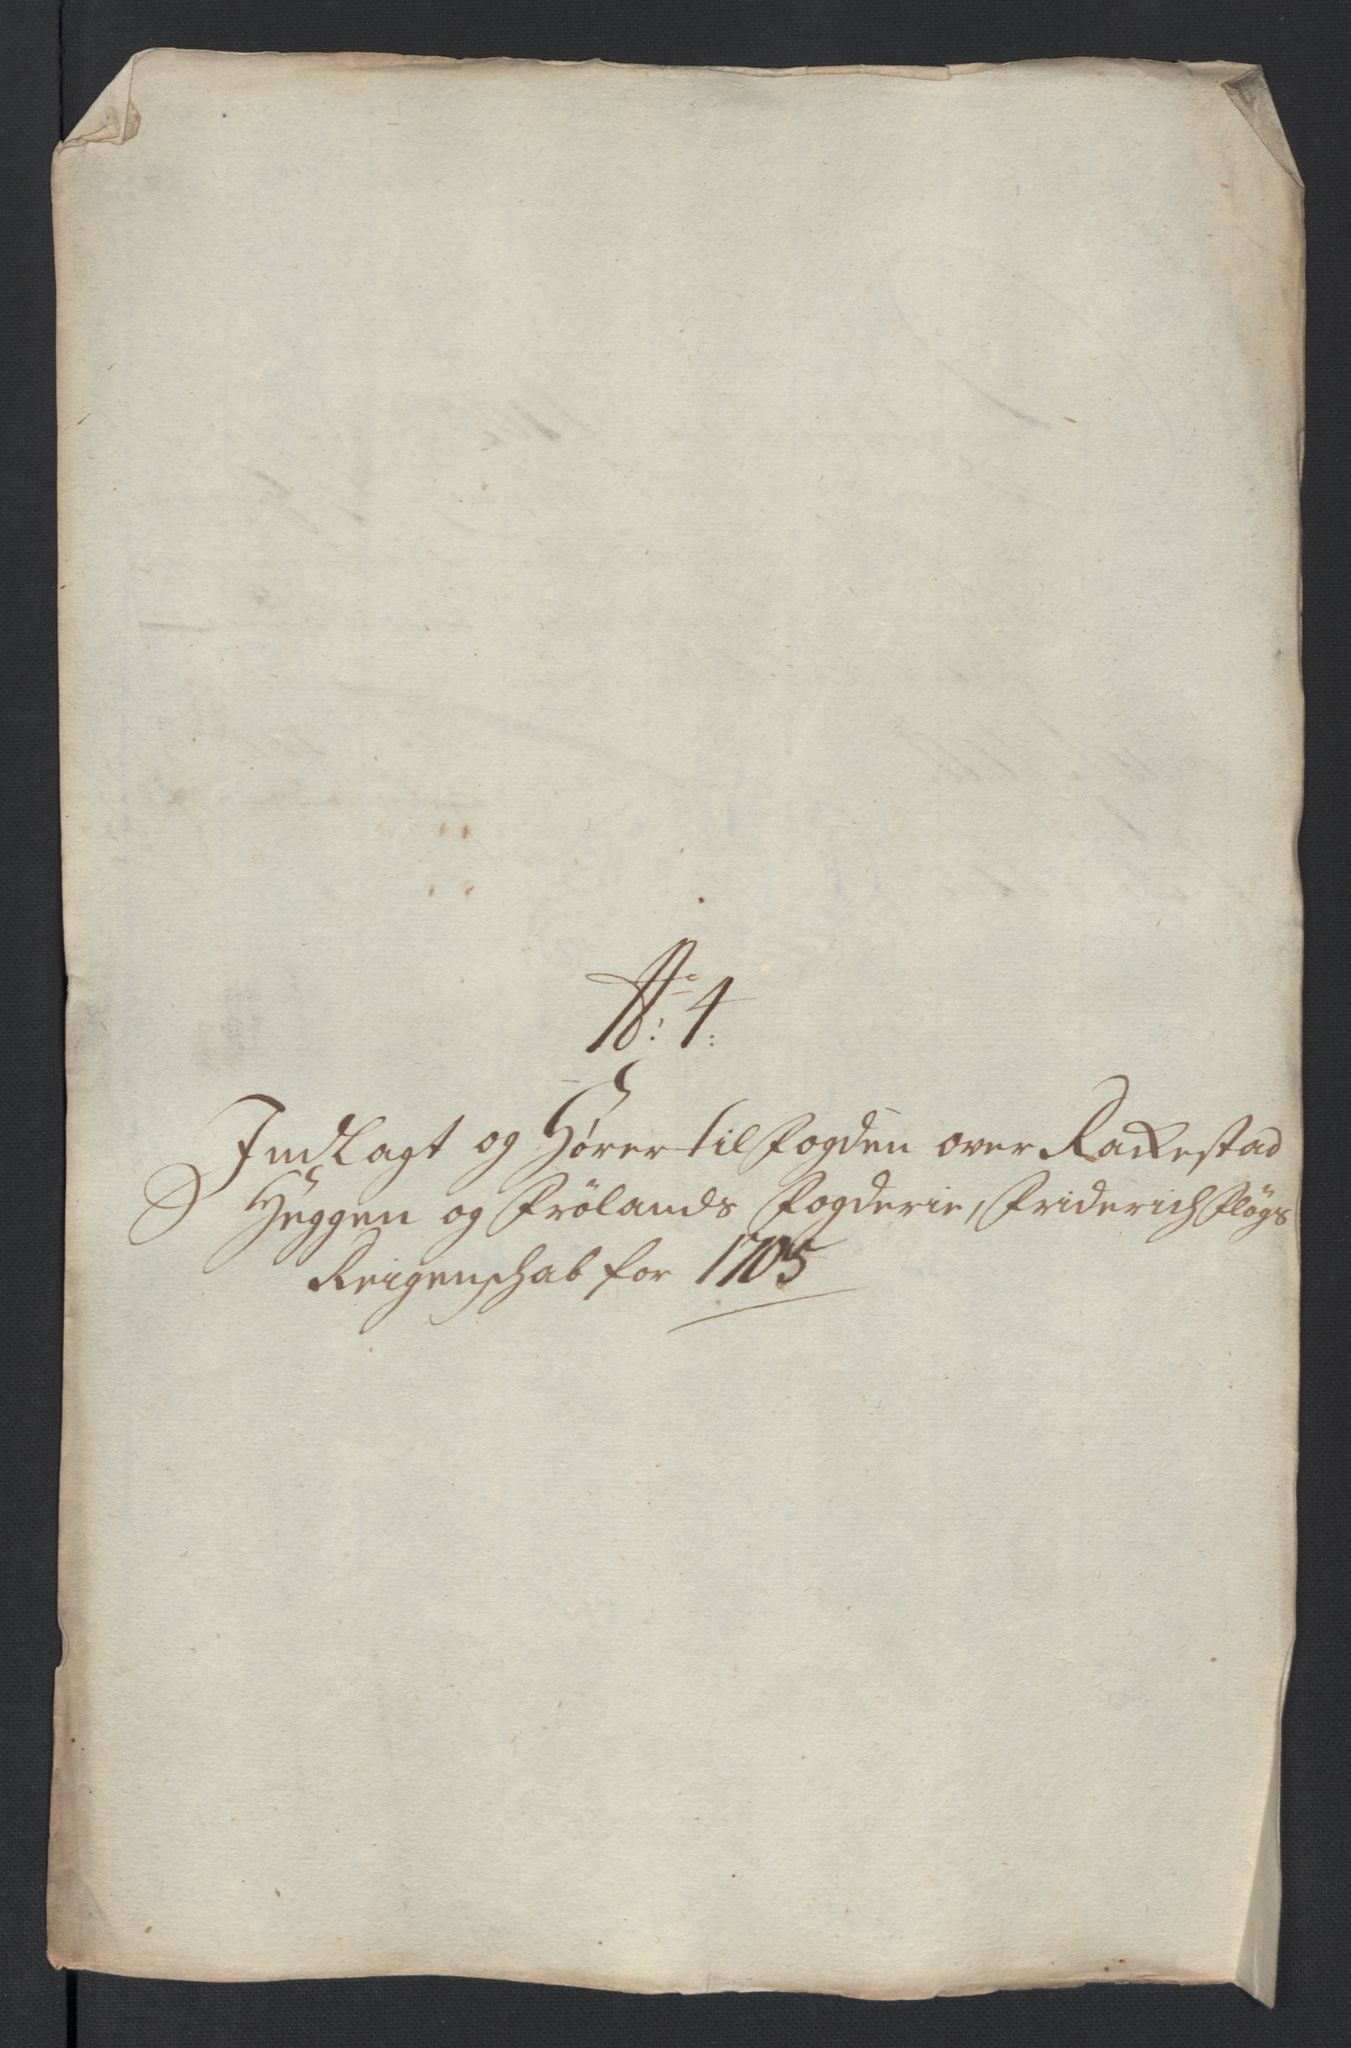 No: 4:
Indlagt og hører til Fogden over Rackestad
Heggen og Frölands Fogderie, Friderich Flögs
Reigenschab for 1705